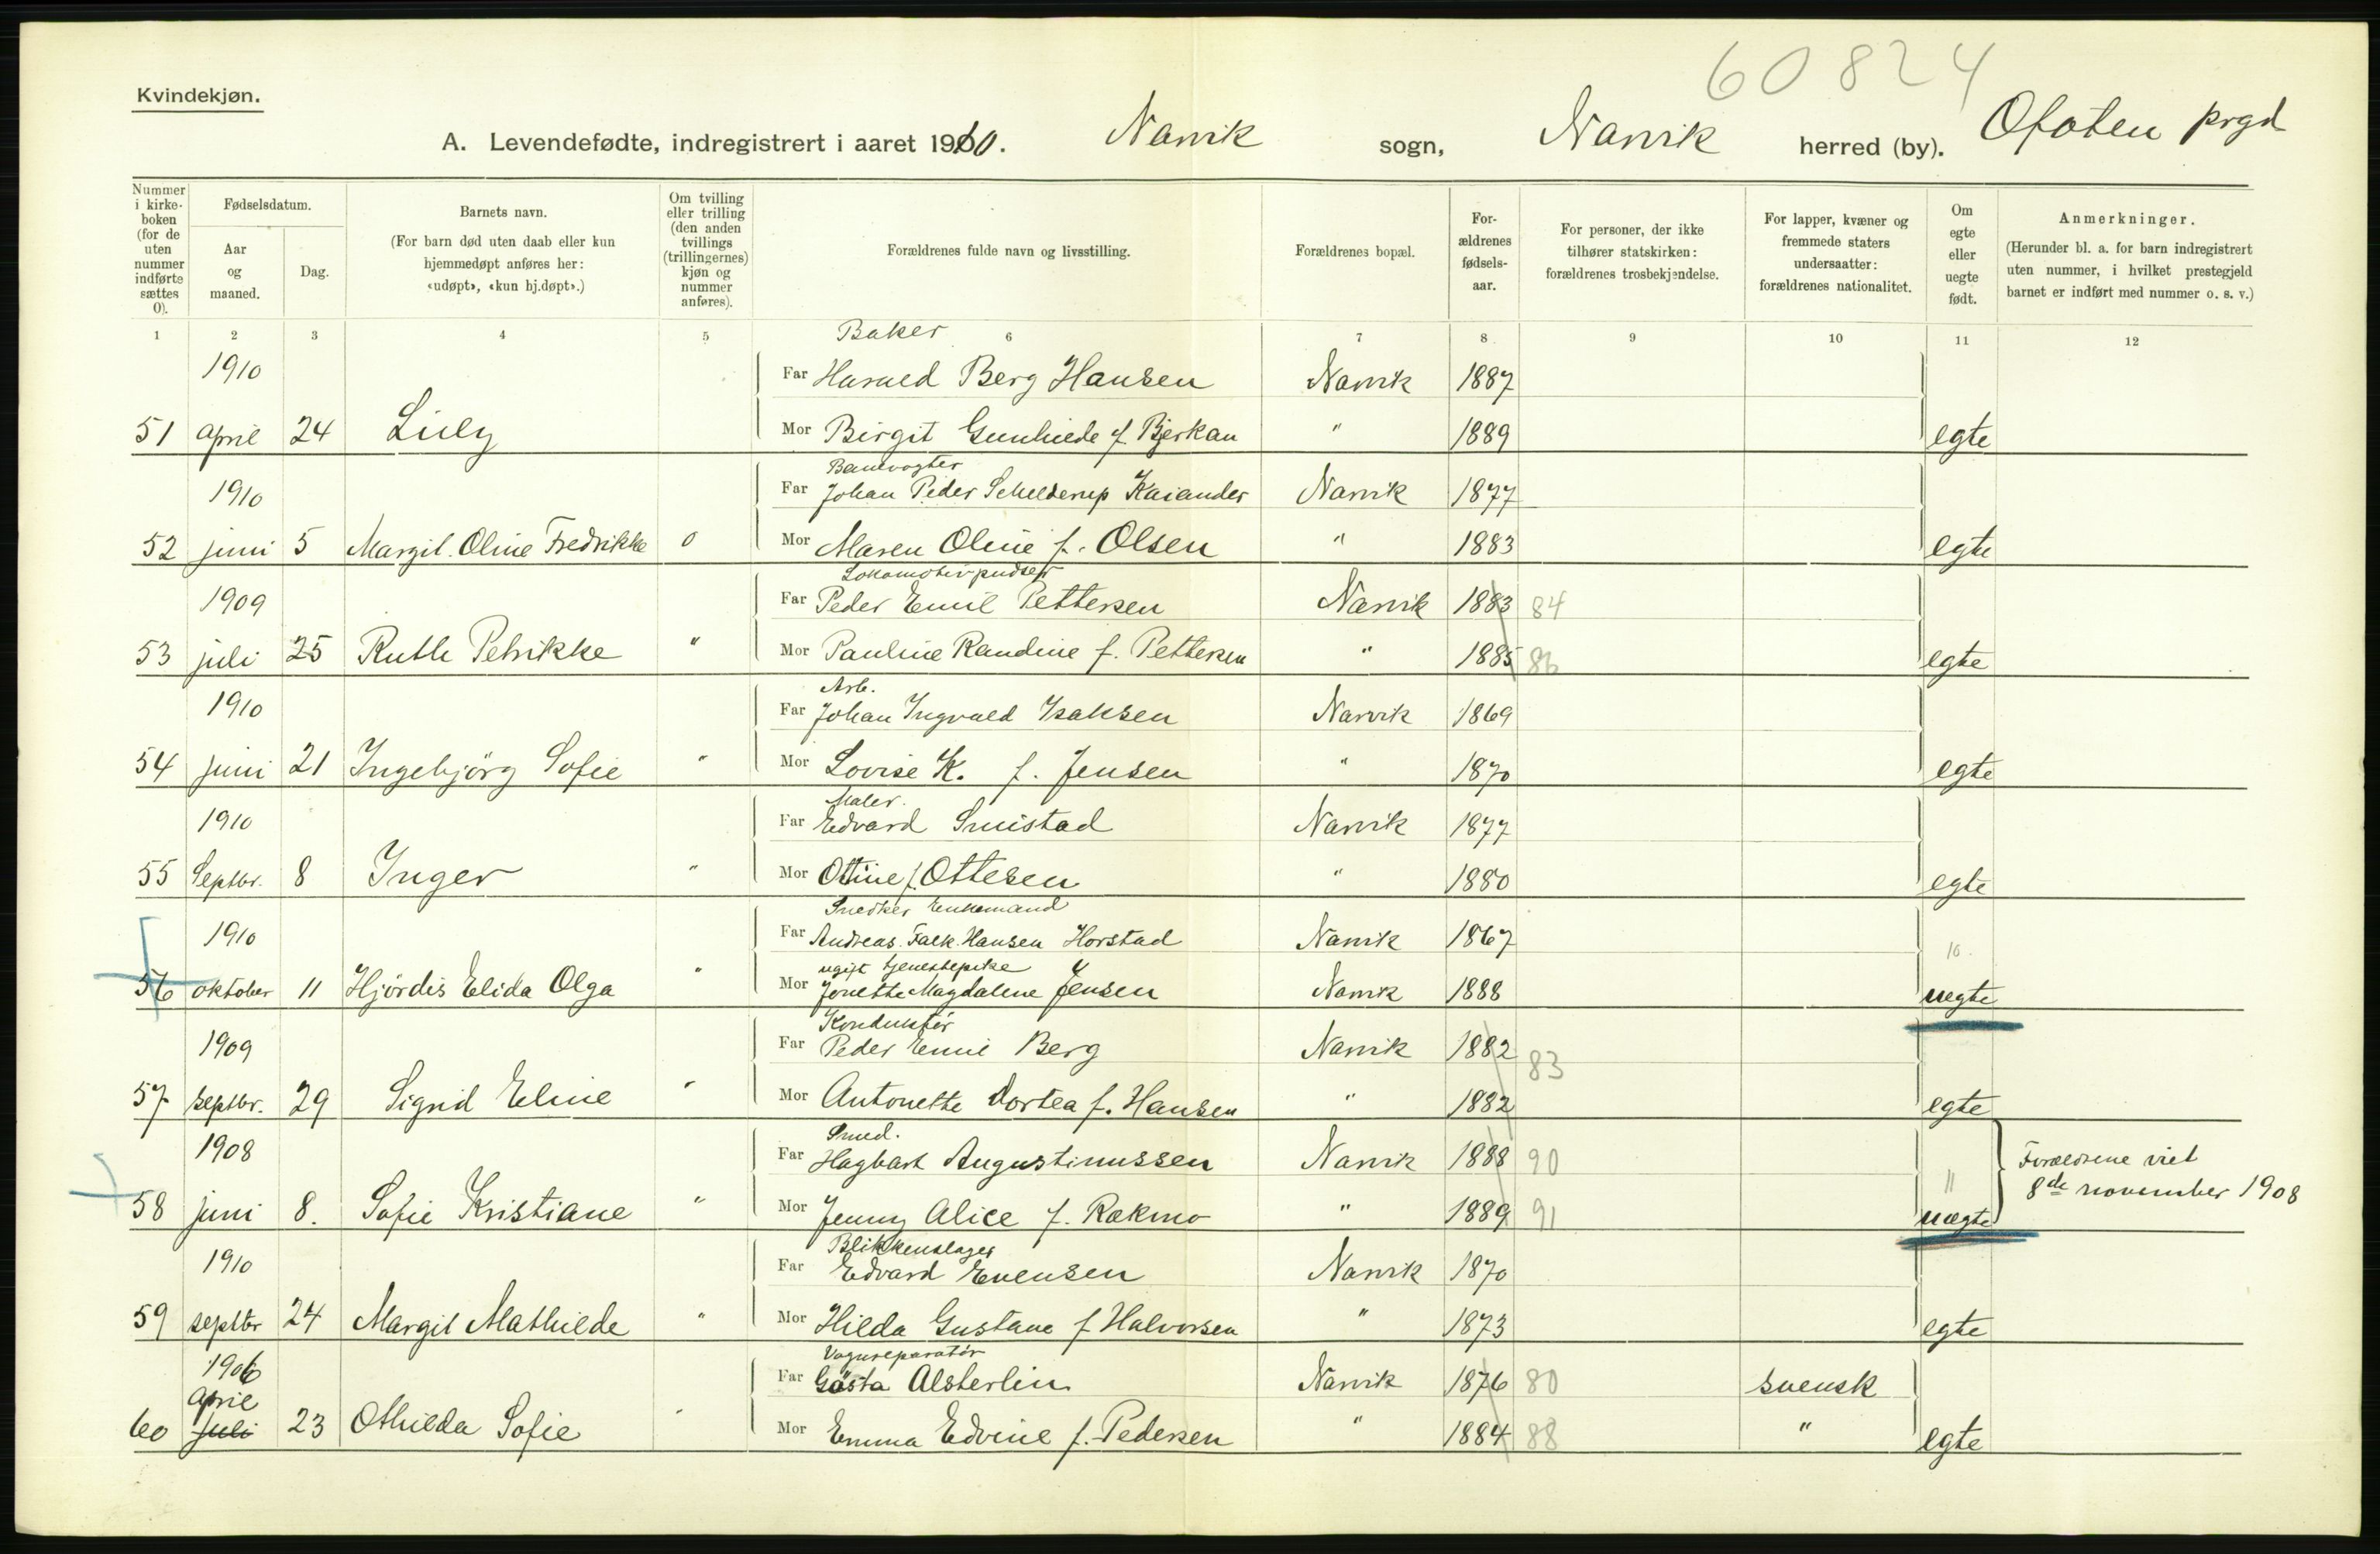 60824
Kvindekjøn.
A. Levendefødte, indregistrert i aaret 1910. Narvik sogn, Narvik herred (by). Ofoten prgd
Nummer i kirkeboken (for de uten nummer indførte sættes 0).
Fødselsdatum.
Aar og maaned.
Dag.
Barnets navn.
(For barn død uten daab eller kun hjemmedøpt anføres her: «udøpt», «kun hj.døpt».)
Om tvilling eller trilling (den anden tvillings (trillingernes) kjøn og nummer anføres).
Forældrenes fulde navn og livsstilling.
Forældrenes bopæl.
Forældrenes fødselsaar.
For personer, der ikke tilhører statskirken: forældrenes trosbekjendelse.
For lapper, kvæner og fremmede staters undersaatter: forældrenes nationalitet.
Om egte eller uegte født.
Anmerkninger.
(Herunder bl. a. for barn indregistrert uten nummer, i hvilket prestegjeld barnet er indført med nummer o. s. v.)
1 2 3 4 5 6 7 8 9 10 11 12
Baker
1910 Far Harald Berg Hansen Narvik 1887
51 april 24 Lily Mor Birgit Gunhilde f. Bjerkan " 1889 egte
Banevogter
1910 Far Johan Peder Schelderup Kaiander Narvik 1877
52 juni 5 Margit. Oline Fredrikke 0 Mor Maren Oline f. Olsen " 1883 egte
Lokomotivpudser
1909 Far Peder Emil Pettersen Narvik 1883 84
53 juli 25 Ruth Petrikke " Mor Pauline Randine f. Pettersen " 1885 86 egte
Arb.
1910 Far Johan Ingvald Isaksen Narvik 1869
54 juni 21 Ingebjörg Sofie " Mor Lovise K. f. Jensen " 1870 egte
Maler.
1910 Far Edvard Smistad Narvik 1877
55 Septbr. 8 Inger " Mor Ottine f. Ottesen " 1880 egte
Snedker Enkemand
1910 Far Andreas. Falk. Hansen Horstad Narvik 1867 10.
ugift tjenestepike
56 oktober 11 Hjördis Elida Olga " Mor Jonette Magdalene Jensen Narvik 1888 uegte
Konduktør
1909 Far Peder Emil Berg Narvik 1882 83
57 septbr. 29 Signd Eline " Mor Antonette Dortea f. Hansen " 1882 egte
Smed.
1908 Far Hagbart Augustinussen Narvik 1888 90 Forældrene viet
58 juni 8. Sofie Kristiane " Mor Jenny Alice f. Rakmo " 1889 91 11 uegte 8de november 1908
Blikkenslager
1910 Far Edvard Evensen Narvik 1870
59 septbr 24 Margit Mathilde " Mor Hilda Gustava f Halvorsen " 1873 egte
Vognreparatör
1906 Far Gösta Alsterlin Narvik 1876 80 svensk
april
60 juli 23 Othilda Sofie " Mor Emma Edvine f. Pedersen " 1884 88 " egte